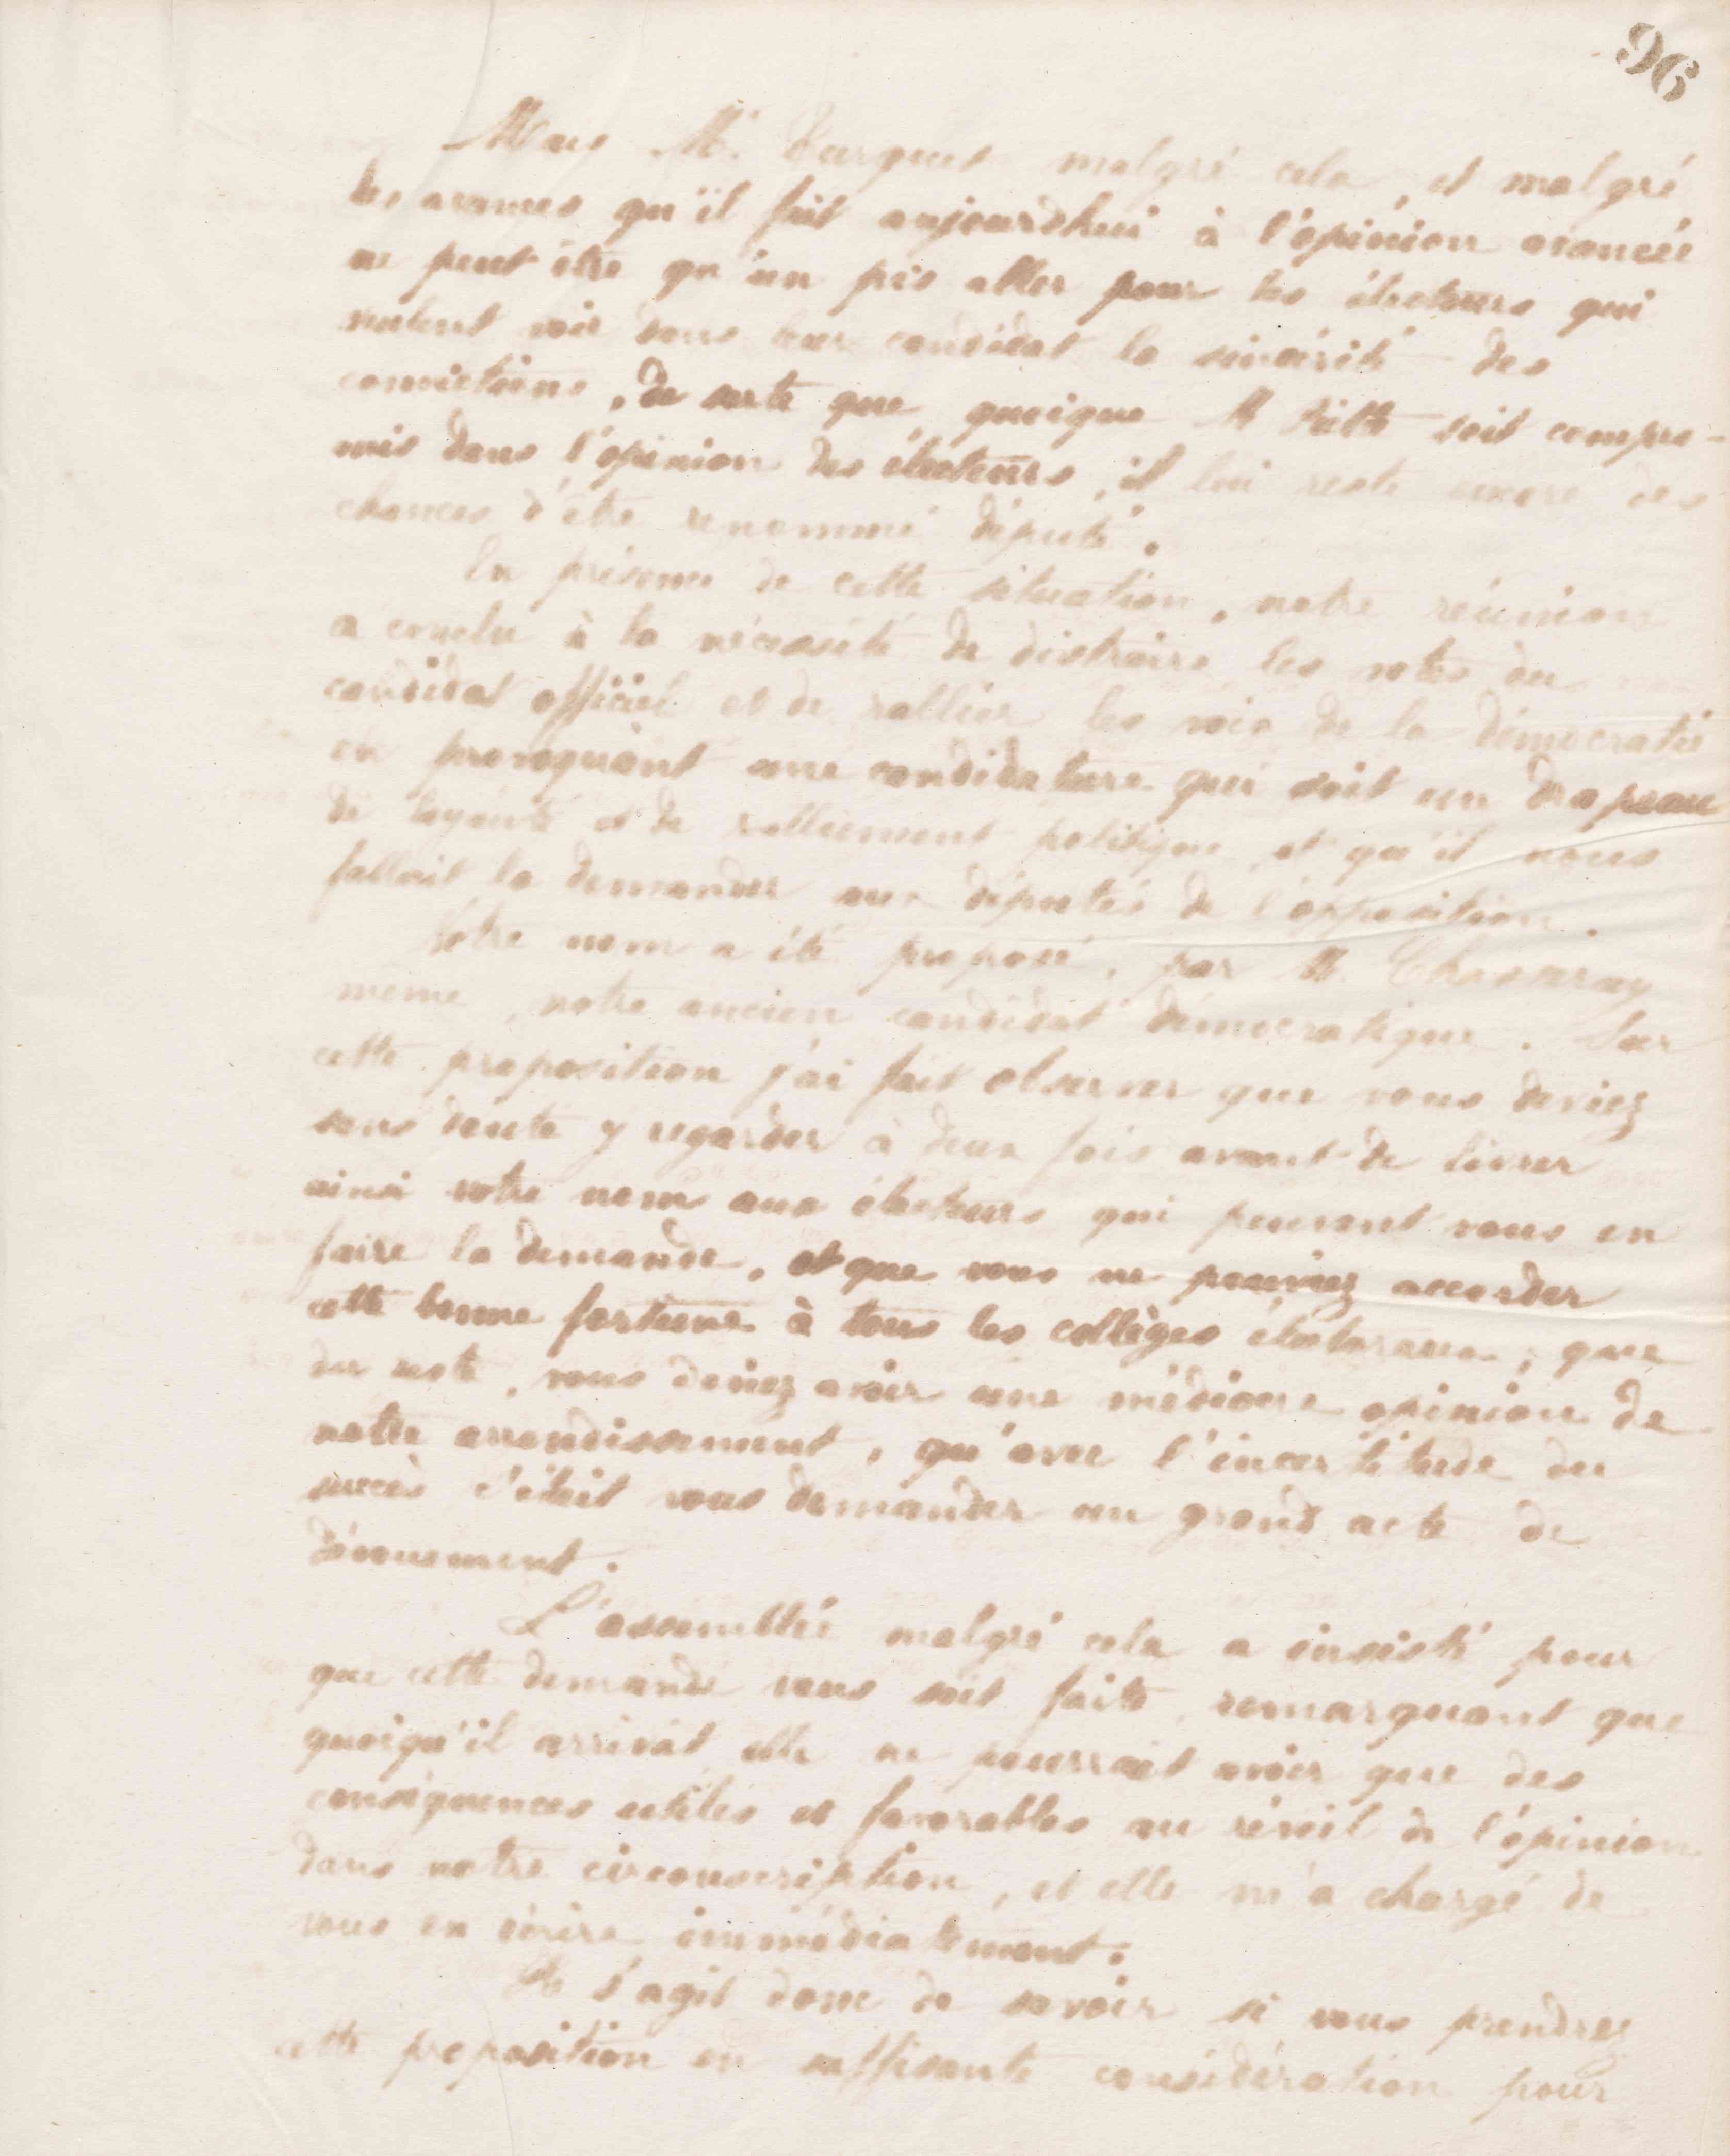 96
Mais M. Turquet malgré cela, et malgré
les avances qu'il fait aujourdhui à l'opinion avancée
ne peut être qu'un pis aller pour les électeurs qui
veulent voir dans leur candidat la sincérité des
convictions, de sorte que, quoique M soit compro-
mis dans l'opinion des électeurs, il lui reste encore des
chances d'être renommé député.
En présence de cette situation, notre réunion
a conclu à la nécessité de distraire les votes du
candidat officiel et de rallier les voix de la démocratie
en provoquant une candidature qui soit un drapeau
de loyauté et de ralliement politique, et qu'il nous
fallait la demander aux députés de l'opposition.
Votre nom a été proposé, par M.
même, notre ancien candidat démocratique. Sur
cette proposition j'ai fait observer que vous deviez
sans doute y regarder à deux fois avant de livrer
ainsi votre nom aux électeurs qui peuvent vous en
faire la demande, et que vous ne pouviez accorder
cette bonne fortune à tous les collèges électoraux, que
du reste, vous deviez avoir une médiocre opinion de
notre arrondissement, qu'avec l'incertitude du
succès c'était vous demander un grand acte de
dévouement.
L'assemblée malgré cela a insisté pour
que cette demande vous soit faite, remarquant que
quoiqu'il arrivat, elle ne pourrait avoir que des
conséquences utiles et favorables au réveil de l'opinion
dans notre circonscription, et elle m'a chargé de
vous en écrire immédiatement.
Il s'agit donc de savoir si vous prendrez
cette proposition en suffisante considération pour